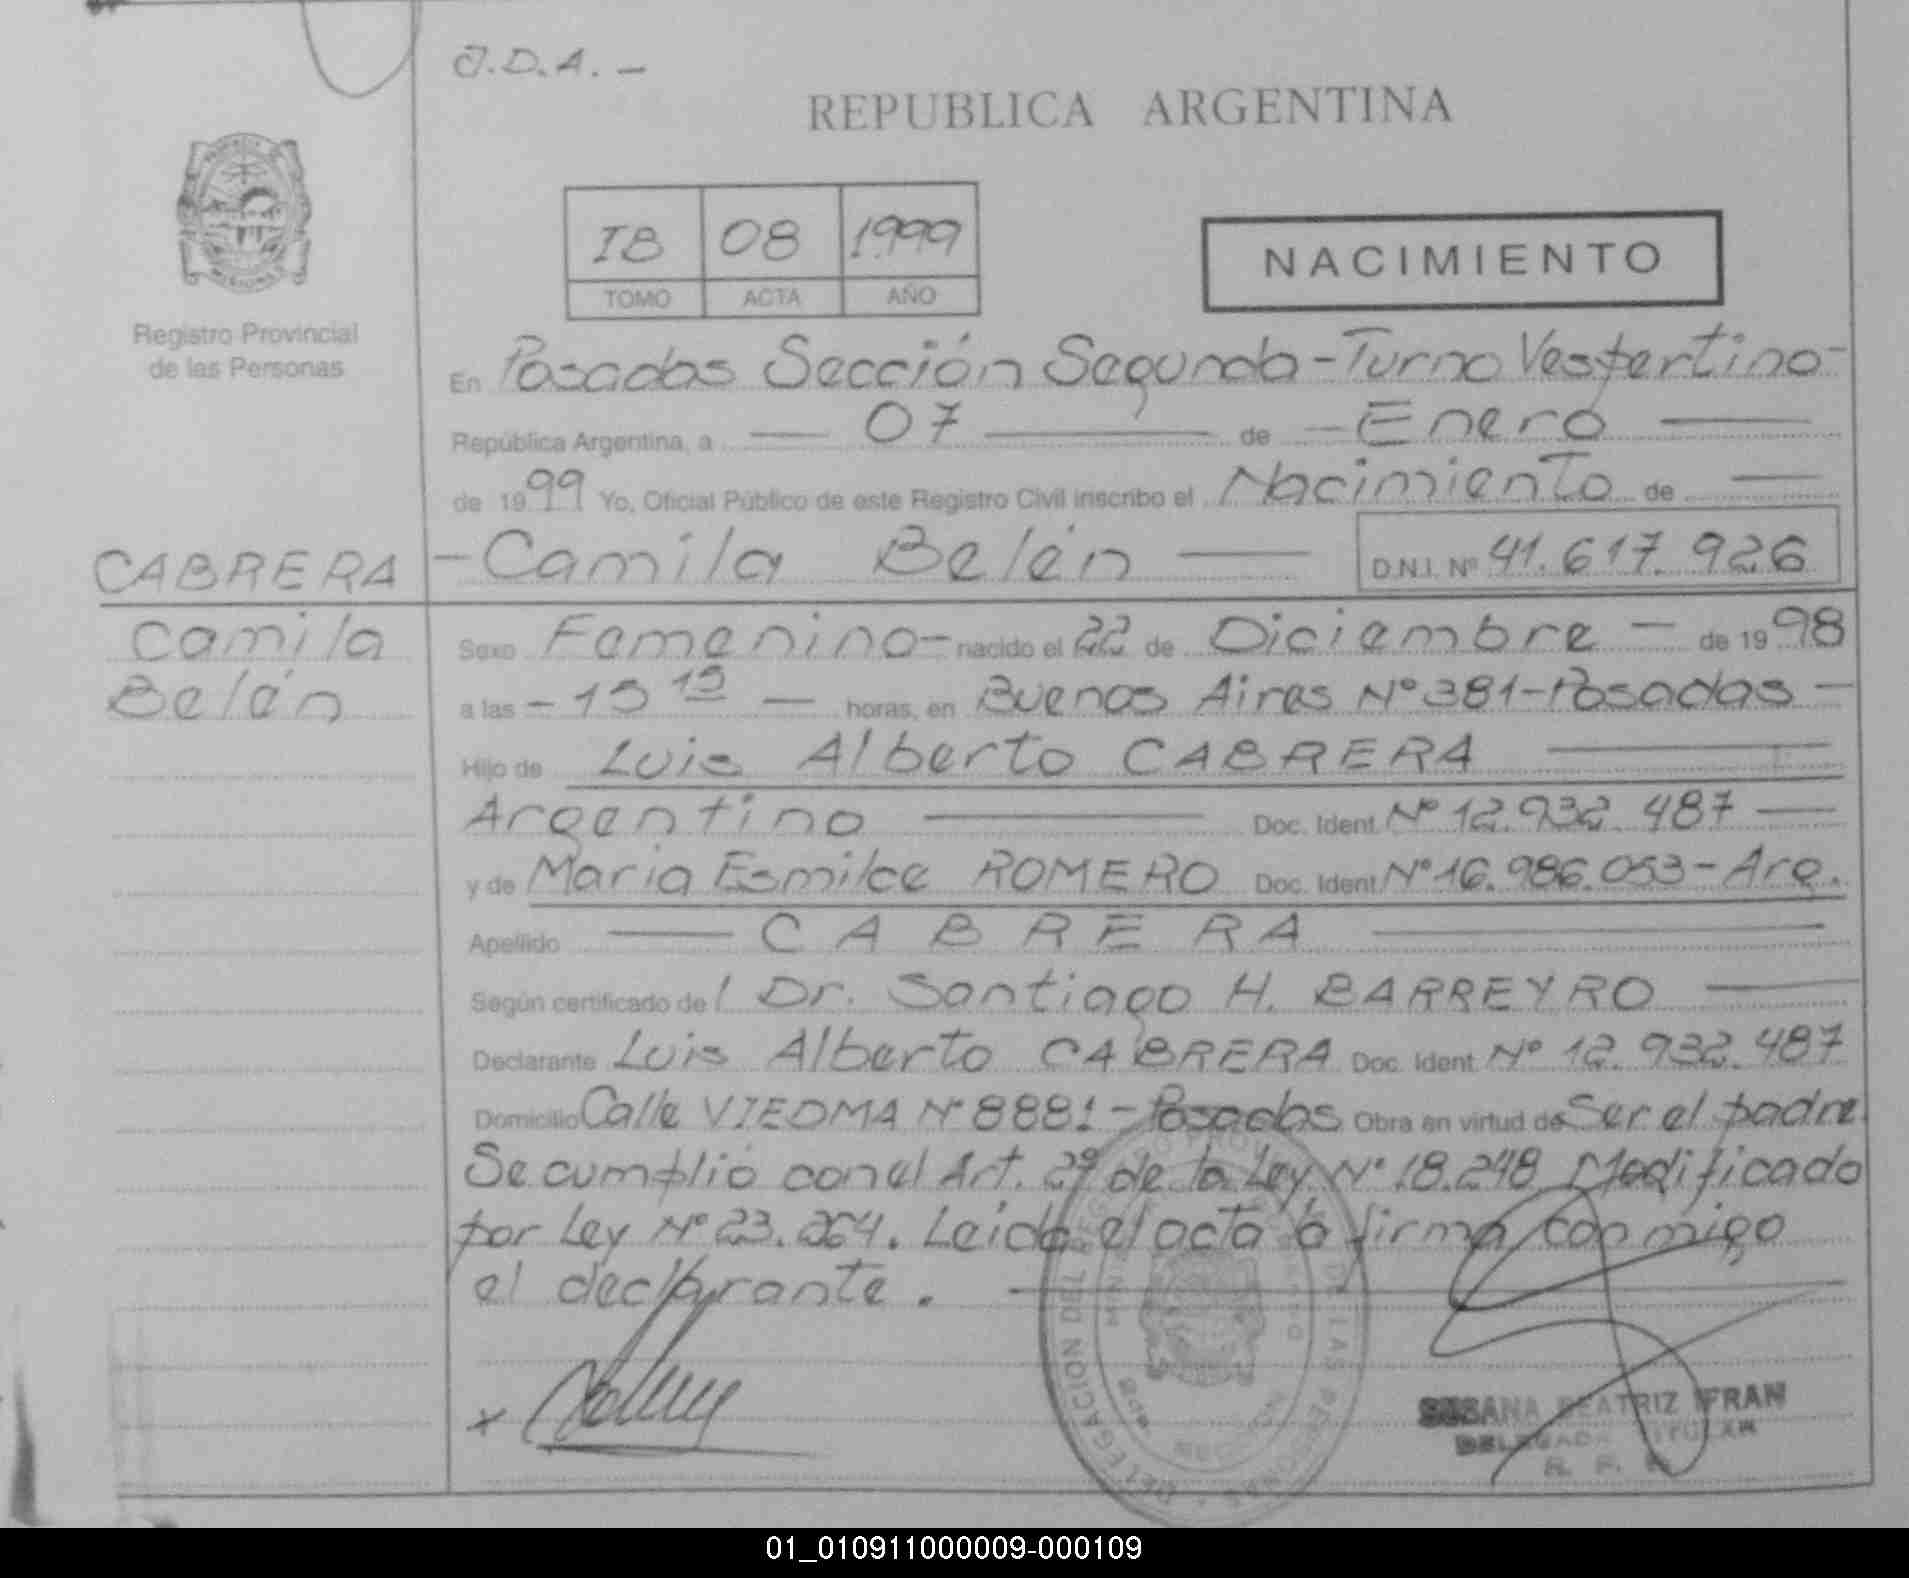 J.D.A. —
REPUBLICA ARGENTINA
I B 08 1.999
TOMO ACTA AÑO
NACIMIENTO
Registro Provincial
de las Personas
En Posadas Sección Segunda - Turno Vespertino -
República Argentina, a — 07 — de - Enero —
de 1999 Yo, Oficial Público de este Registro Civil inscribo el Nacimiento de —
CABRERA - Camila Belén — D.N.I. Nº 41.617.926
Camila
Belén
Sexo Femenino - nacido el 22 de Diciembre — de 1998
a las - 15 15 — horas, en Buenos Aires Nº 381 - Posadas —
Hijo de Luis Alberto CABRERA —
Argentino — Doc. Ident. Nº 12.932.487 —
y de Maria Esmilce ROMERO Doc. Ident Nº 16.986.053 - Arg.
Apellido — CABRERA —
Según certificado de l Dr. Santiago H. BARREYRO —
Declarante Luis Alberto CABRERA Doc. Ident Nº 12.932.487
Domicilio Calle VIEDMA Nº 8881 - Posadas Obra en virtud de Ser el padre
Se cumplió con el Art. 2º de la Ley Nº 18.248 Modificado
por Ley Nº 23.264. Leida el acta la firma conmigo
el declarante. —
x
DELEGACION DEL REGISTRO PROV DE LAS PERSONAS
SUSANA BEATRIZ IFRAN
DELEGADA TITULAR
R. P.
01_010911000009-000109